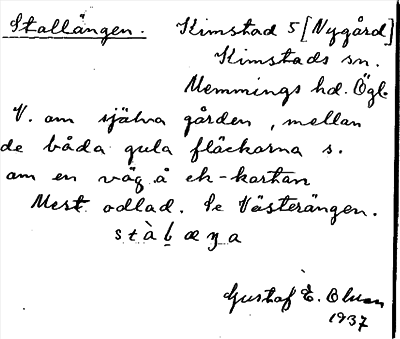 Stallängen. Kimstad 5 [Nygård]
Kimstads sn.
Memmings hd. Ögl.
V. om själva gården, mellan
de båda gula fläckarna s.
om en väg å ek-kartan
Mest odlad. Se Västerängen.
Gustaf E. Olsson
1937